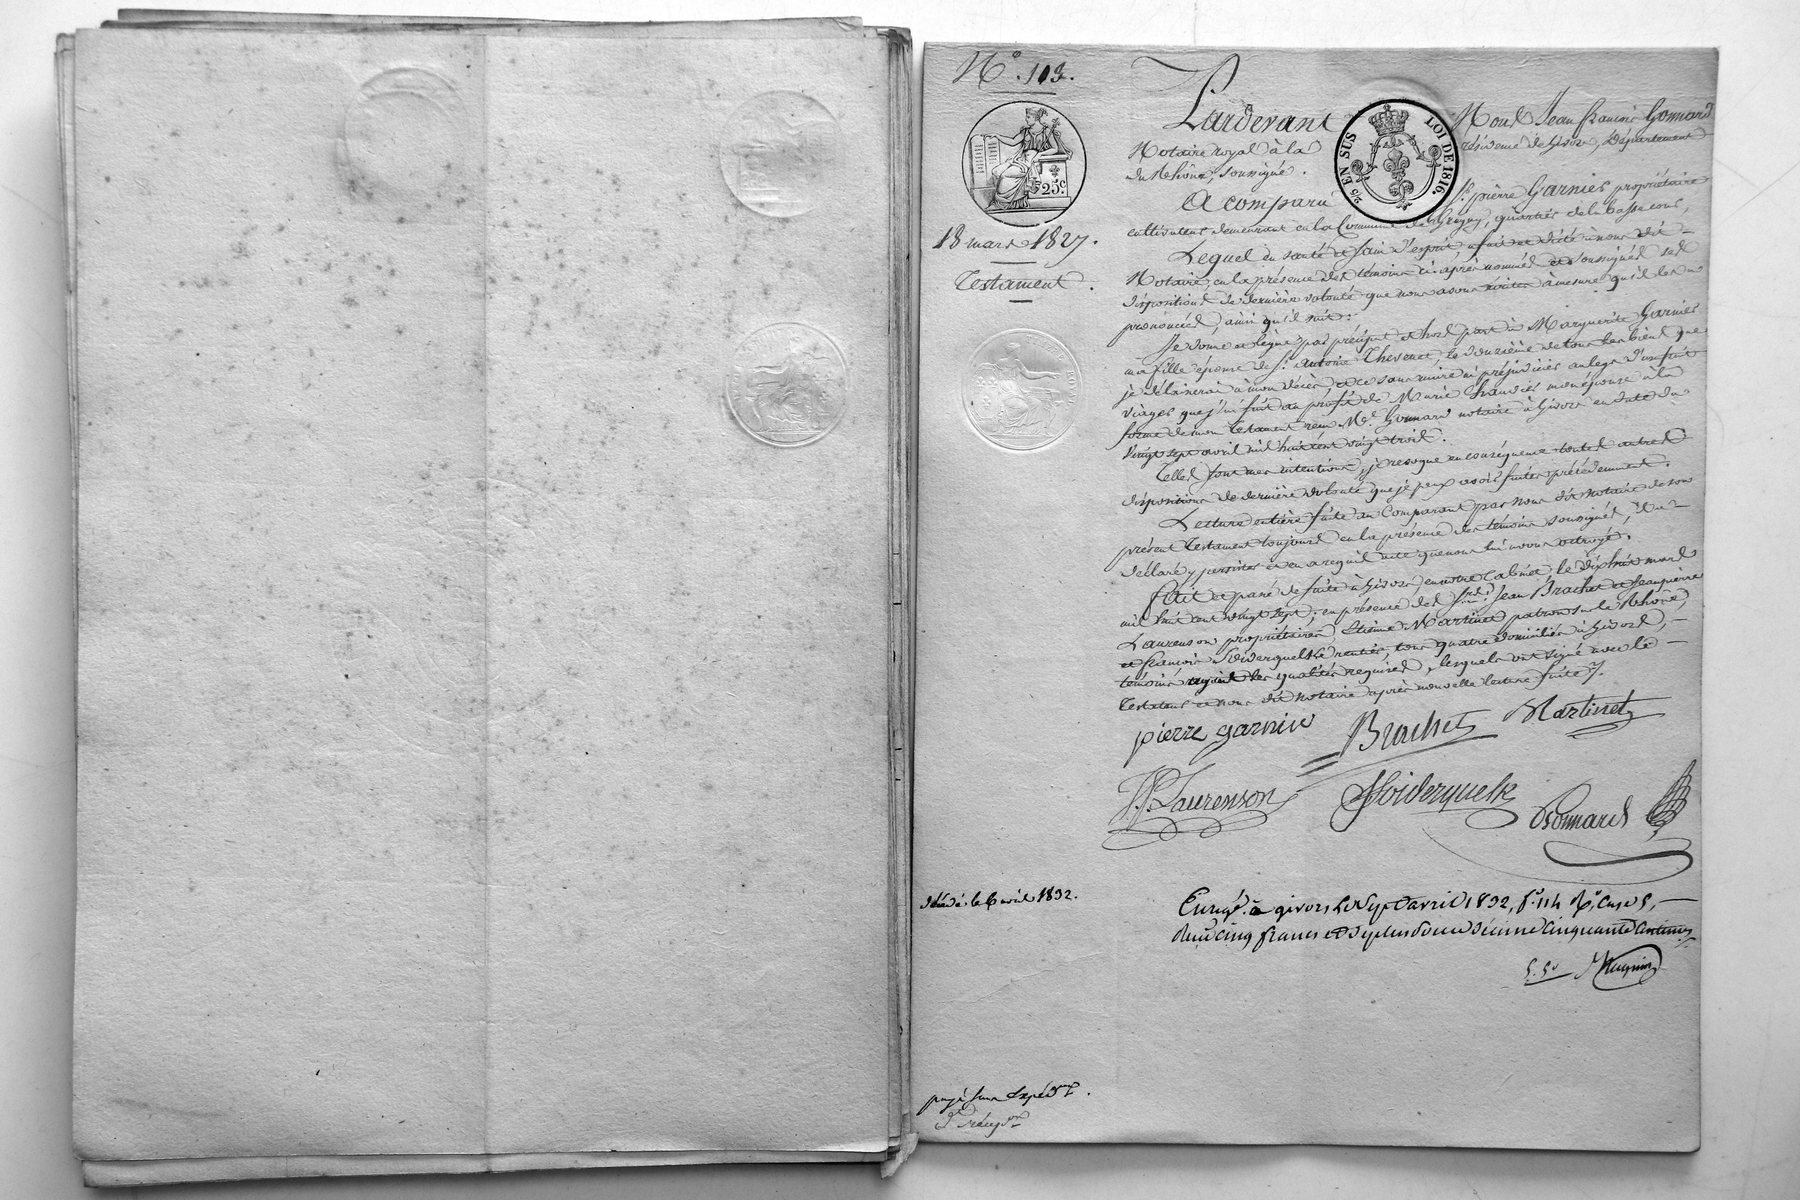 N.° 113.
25c
25 EN SUS LOI DE 1816.
18 mars 1827.
Testament.
Pardevant Nous Jean François Gonnard
Notaire royal à la résidence de Givors, département
du Rhône, soussigné.
A comparu S.r pierre Garnier propriétaire
cultivateur demeurant en la Commune de Grigny, quartier de la basse cour,
Lequel en santé et sain d'esprit, a fait et dicté à nous dit
Notaire, en la présence des témoins ci-après nommés et soussignés ses
dispositions de dernière volonté que nous avons écrites à mesure qu'il les a
prononcées, ainsi qu'il suit:
Je donne et lègue par préciput et hors part à Marguerite Garnier
ma fille épouse de S.r Antoine Thevenet le douzième de tous les biens que
je délaisserai à mon décès, et ce sans nuire ni préjudicier au legs d'usufruit
viager que j'ai fait au profit de Marie mon épouse à la
forme de mon testament reçu M.e Gonnard notaire à Givors en date du
vingt sept avril mil huit cent vingt trois.
Telles sont mes intentions, je révoque en conséquence toutes autres
dispositions de dernière volonté que je peux avoir faites précédemment.
Lecture entière faite au Comparant par nous dit notaire de son
présent testament toujours en la présence des témoins soussignés, il a
déclaré y persister et en a requis acte que nous lui avons octroyé.
Fait et passé de suite à Givors en notre Cabinet le dix huit mars
mil huit cent vingt sept, en présence des S.rs Jean Brachet et Jean pierre
Laurenson propriétaires Etienne Martinet patron sur le Rhône,
et françois Soiderquelk rentier, tous quatre domiciliés à Givors,
témoins ayant les qualités requises, lesquels ont signé avec le
testateur et nous dit notaire après nouvelle lecture faite.
pierre garnier Brachet Martinet
J.P. Laurenson f Soiderquelk Gonnard
décédé le 6 avril 1832.
Enreg.é à givors le Sept avril 1832, f.o 114 R.o Case 5,
Reçu cinq francs et dixième cinquante centimes
payé sur expéd.on